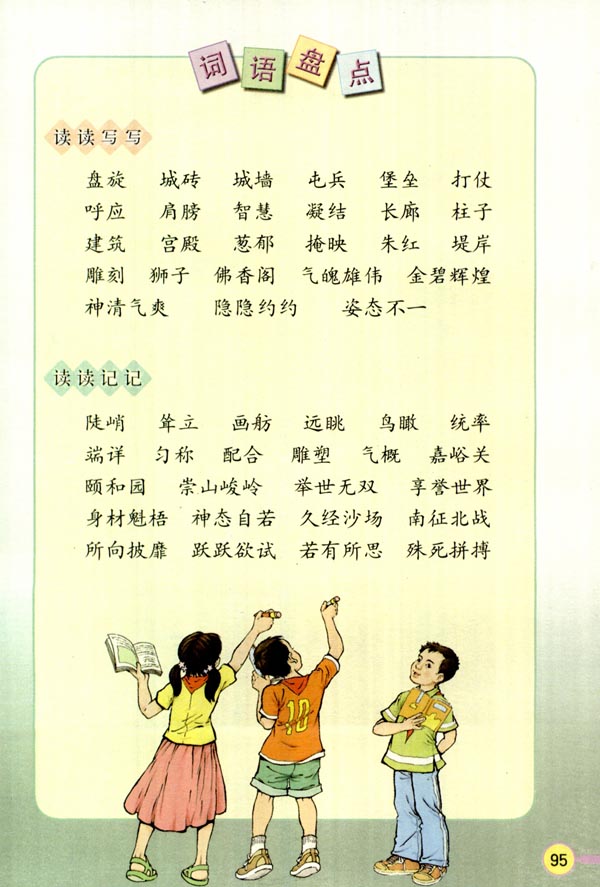 词语盘点
读读写写
盘旋 城砖 城墙 屯兵 堡垒 打仗
呼应 肩膀 智慧 凝结 长廊 柱子
建筑 宫殿 葱郁 掩映 朱红 堤岸
雕刻 狮子 佛香阁 气魄雄伟 金碧辉煌
神清气爽 隐隐约约 姿态不一
读读记记
陡峭 耸立 画舫 远眺 鸟瞰 统率
端详 匀称 配合 雕塑 气概 嘉峪关
颐和园 崇山峻岭 举世无双 享誉世界
身材魁梧 神态自若 久经沙场 南征北战
所向披靡 跃跃欲试 若有所思 殊死拼搏
10
95